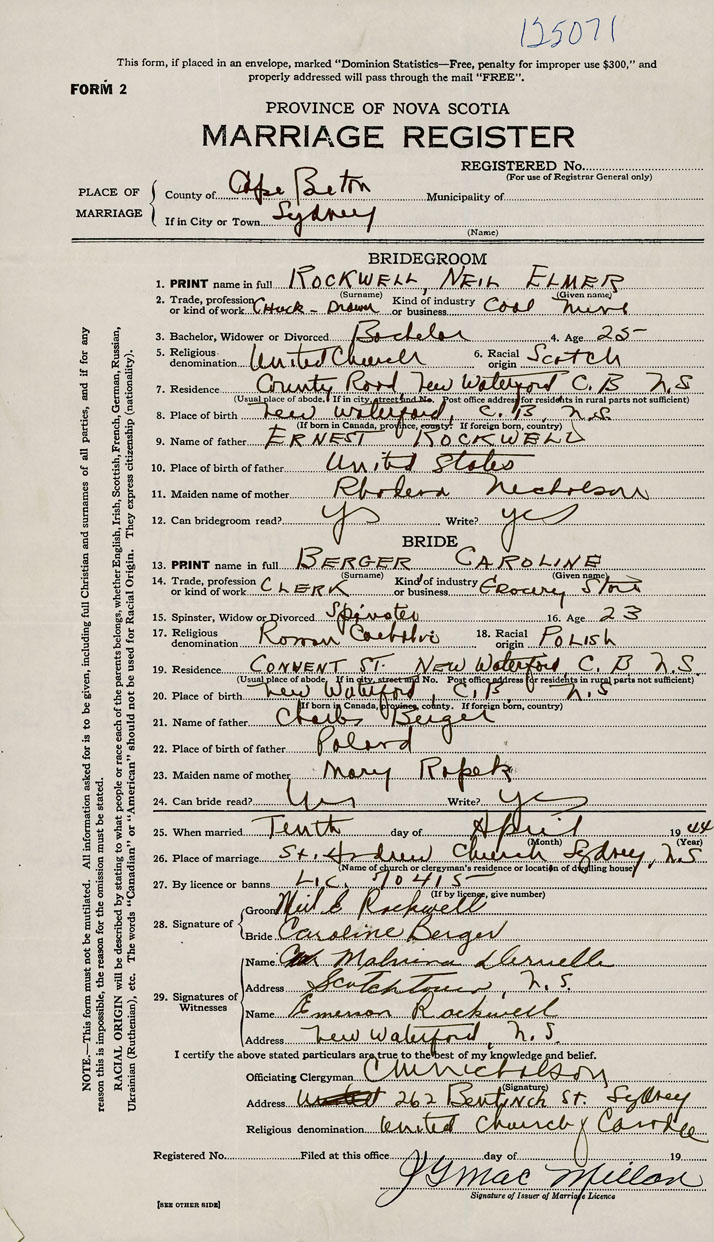 125071
This form, if placed in an envelope, marked “Dominion Statistics—Free, penalty for improper use $300,” and
properly addressed will pass through the mail “FREE”.
FORM 2
PROVINCE OF NOVA SCOTIA
MARRIAGE REGISTER
REGISTERED No.
(For use of Registrar General only)
PLACE OF MARRIAGE
County of Cape Breton Municipality of
If in City or Town Sydney
(Name)
BRIDEGROOM
1. PRINT name in full ROCKWELL, NEIL ELMER
(Surname) (Given name)
2. Trade, profession or kind of work Chuck - Drawer Kind of industry or business Coal mine
3. Bachelor, Widower or Divorced Bachelor 4. Age 25
5. Religious denomination United Church 6. Racial origin Scotch
7. Residence County Road New Waterford C. B N.S
(Usual place of abode. If in city, street and No. Post office address for residents in rural parts not sufficient)
8. Place of birth New Waterford, C.B, N.S
(If born in Canada, province, county. If foreign born, country)
9. Name of father ERNEST ROCKWELL
10. Place of birth of father United States
11. Maiden name of mother Nicholson
12. Can bridegroom read? yes Write? yes
BRIDE
13. PRINT name in full BERGER CAROLINE
(Surname) (Given name)
14. Trade, profession or kind of work CLERK Kind of industry or business Grocery Store
15. Spinster, Widow or Divorced Spinster 16. Age 23
17. Religious denomination Roman Catholic 18. Racial origin POLISH
19. Residence CONVENT ST. NEW Waterford, C. B N.S.
(Usual place of abode. If in city, street and No. Post office address for residents in rural parts not sufficient)
20. Place of birth New Waterford, C.B, N.S
(If born in Canada, province, county. If foreign born, country)
21. Name of father Charles Berger
22. Place of birth of father Poland
23. Maiden name of mother Mary Ropek
24. Can bride read? Yes Write? yes
25. When married Tenth day of April 1944
(Month) (Year)
26. Place of marriage St. Andrew Church Sydney, N.S
(Name of church or clergyman's residence or location of dwelling house)
27. By licence or banns Lic. 10415
(If by licence, give number)
28. Signature of
Groom Neil E Rockwell
Bride Caroline Berger
29. Signatures of Witnesses
Name Malvina
Address Scotchtown, N.S.
Name Emerson Rockwell
Address New Waterford, N.S.
I certify the above stated particulars are true to the best of my knowledge and belief.
Officiating Clergyman CM Nicholson
(Signature)
Address 262 Bentinch St. Sydney
Religious denomination United Church of Canada
Registered No. Filed at this office day of 19
J G MacMillan
Signature of Issuer of Marriage Licence
[SEE OTHER SIDE]
NOTE.—This form must not be mutilated. All information asked for is to be given, including full Christian and surnames of all parties, and if for any
reason this is impossible, the reason for the omission must be stated.
RACIAL ORIGIN will be described by stating to what people or race each of the parents belongs, whether English, Irish, Scottish, French, German, Russian,
Ukrainian (Ruthenian), etc. The words “Canadian” or “American” should not be used for Racial Origin. They express citizenship (nationality).